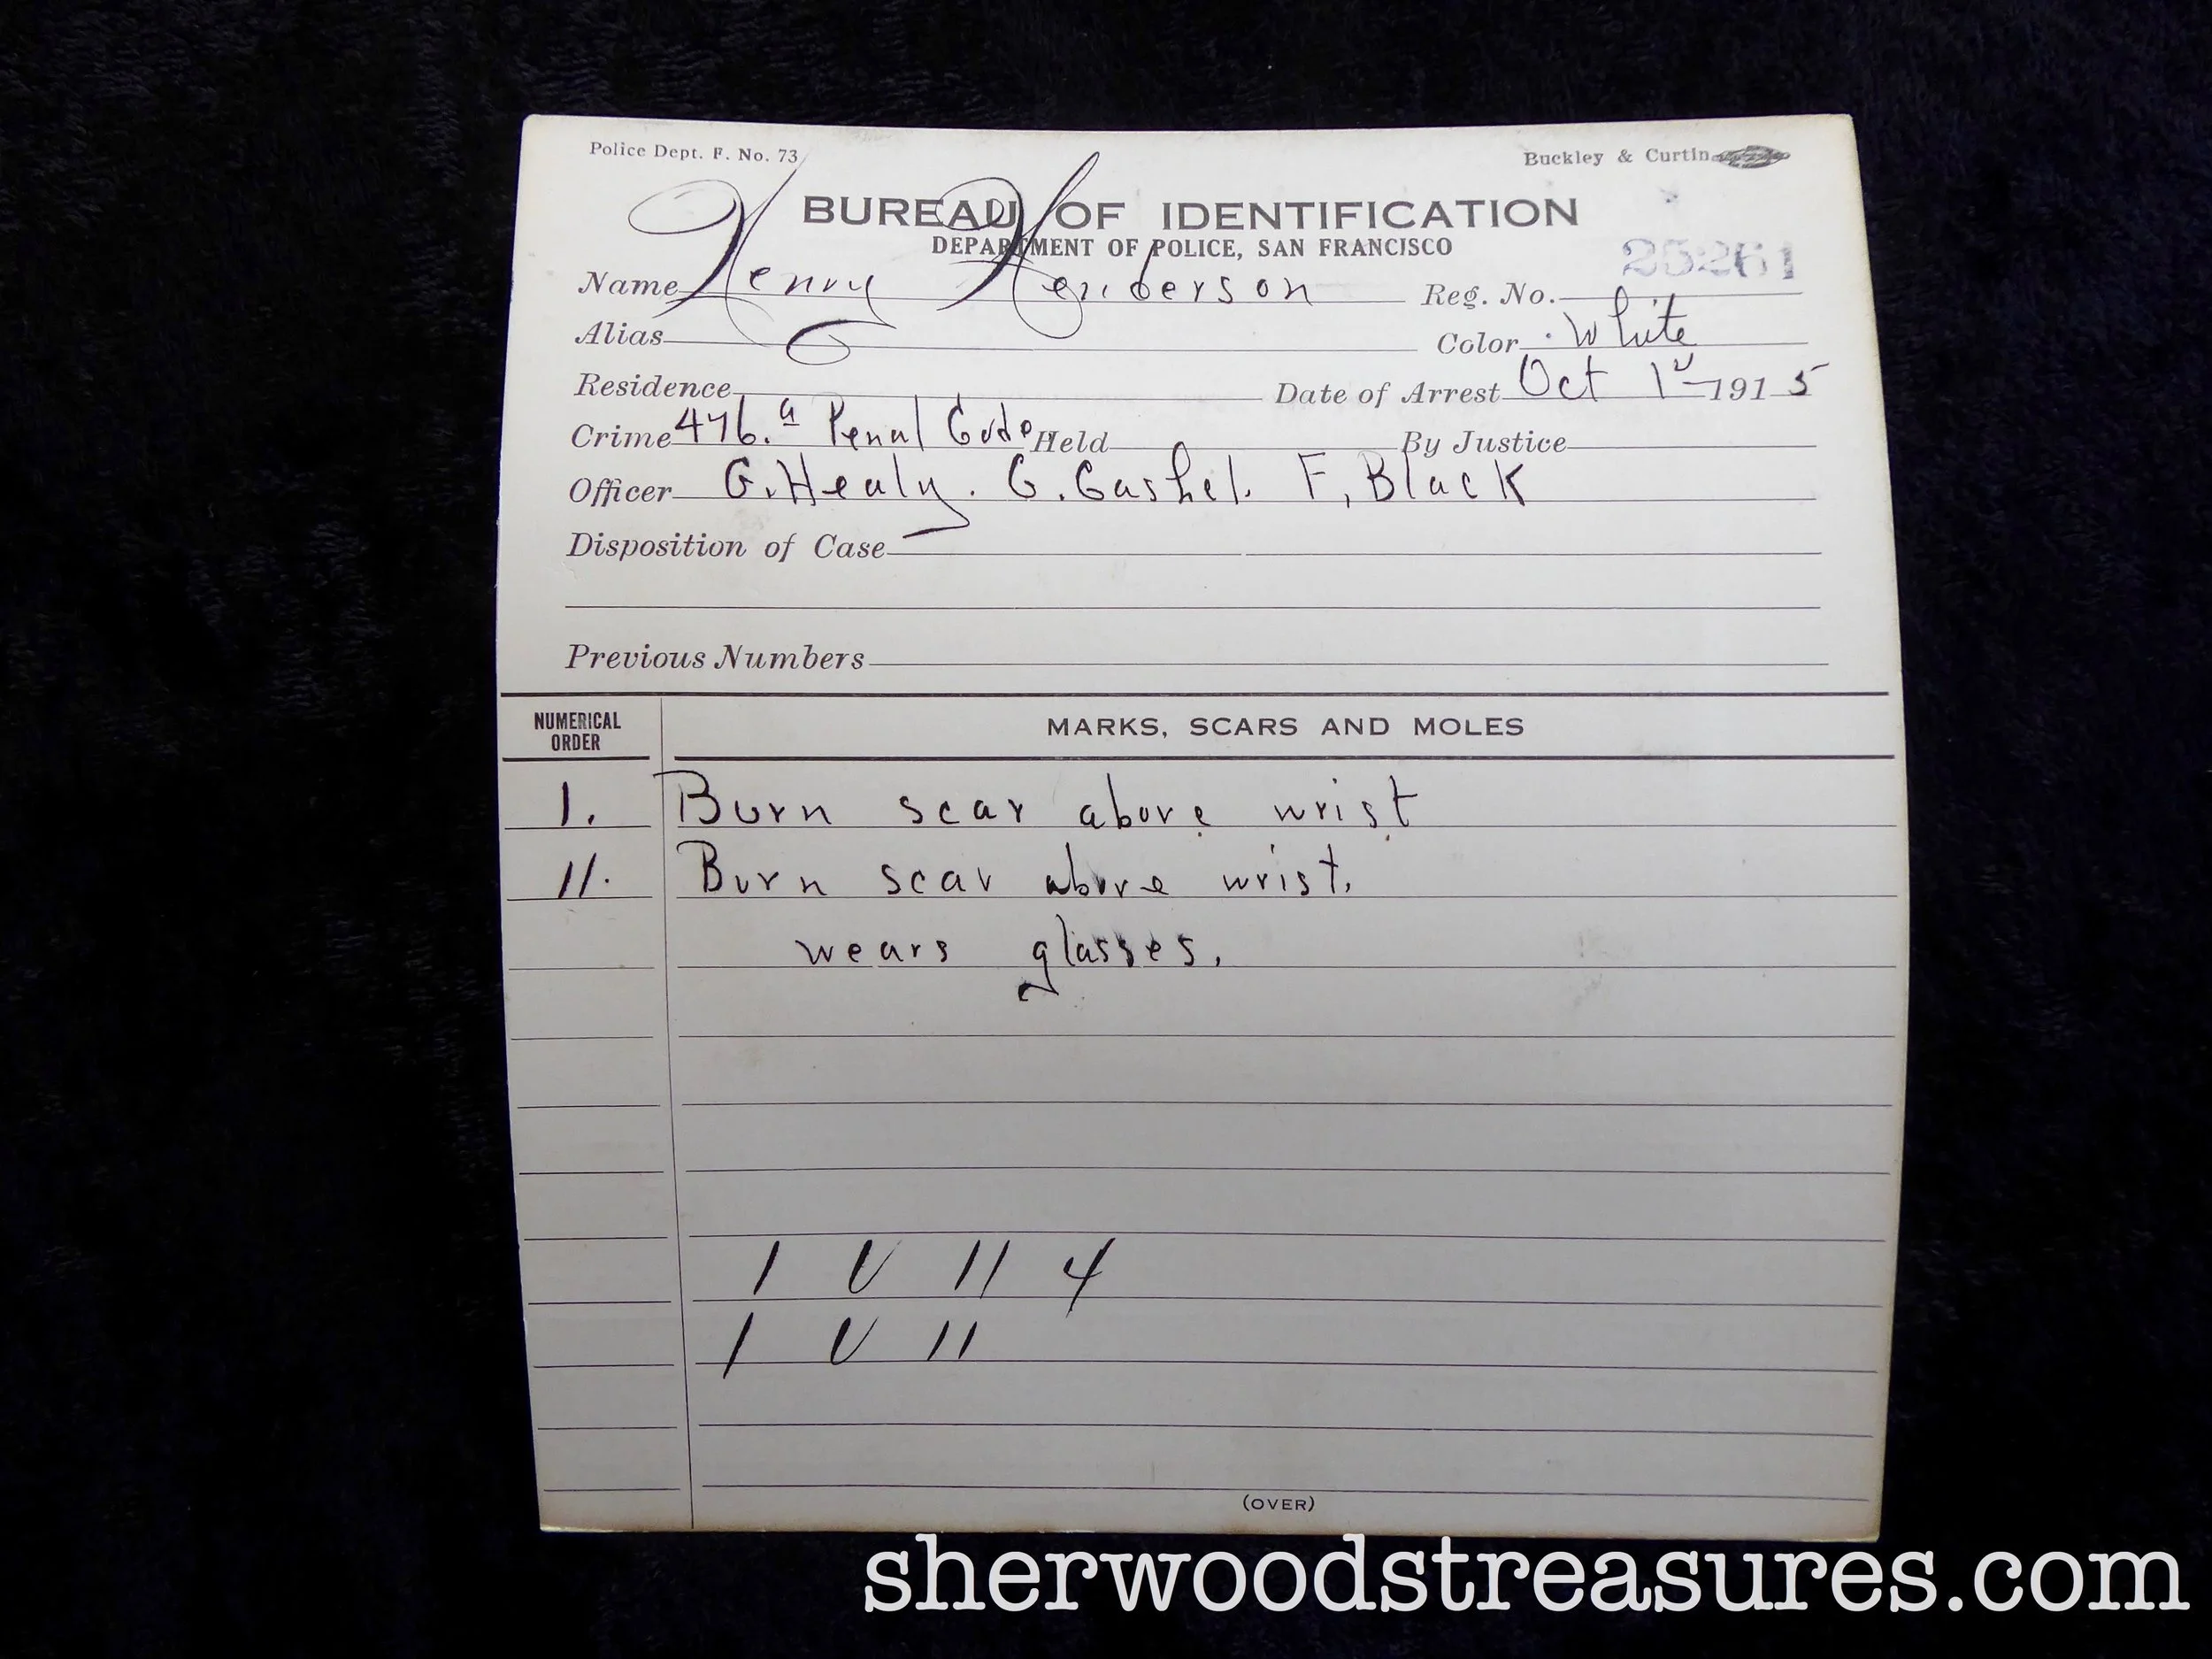 Police Dept. F. No. 73 Buckley & Curtin
BUREAU OF IDENTIFICATION
DEPARTMENT OF POLICE, SAN FRANCISCO
25261
Name Henry Henderson Reg. No.
Alias Color White
Residence Date of Arrest Oct 1 1915
Crime 476.a Penal Code Held By Justice
Officer G. Healy. G. Gashel. F. Black
Disposition of Case
Previous Numbers
NUMERICAL ORDER MARKS, SCARS AND MOLES
1. Burn scar above wrist
11. Burn scar above wrist.
wears glasses.
1 U 11 4
1 U 11
(OVER)
sherwoodstreasures.com